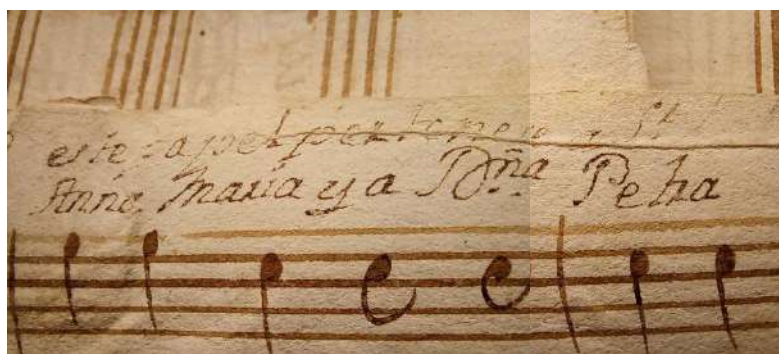 este papel pertenece a St
Anna maria y a Dña Petra